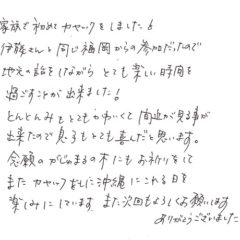 家族で初めてカヤックをしました！
伊藤さんと同じ福岡からの参加だったので
地元の話をしながら とても楽しい時間を
過ごすことが出来ました！
とんとんみもとてもかわいくて 間近が見る事が
出来たので息子もとても喜んだと思います。
念願のがじゅまるの木にもお祈りをして
またカヤックをしに沖縄にこれる日を
楽しみにしています また次回もよろしくお願いします
ありがとうございました